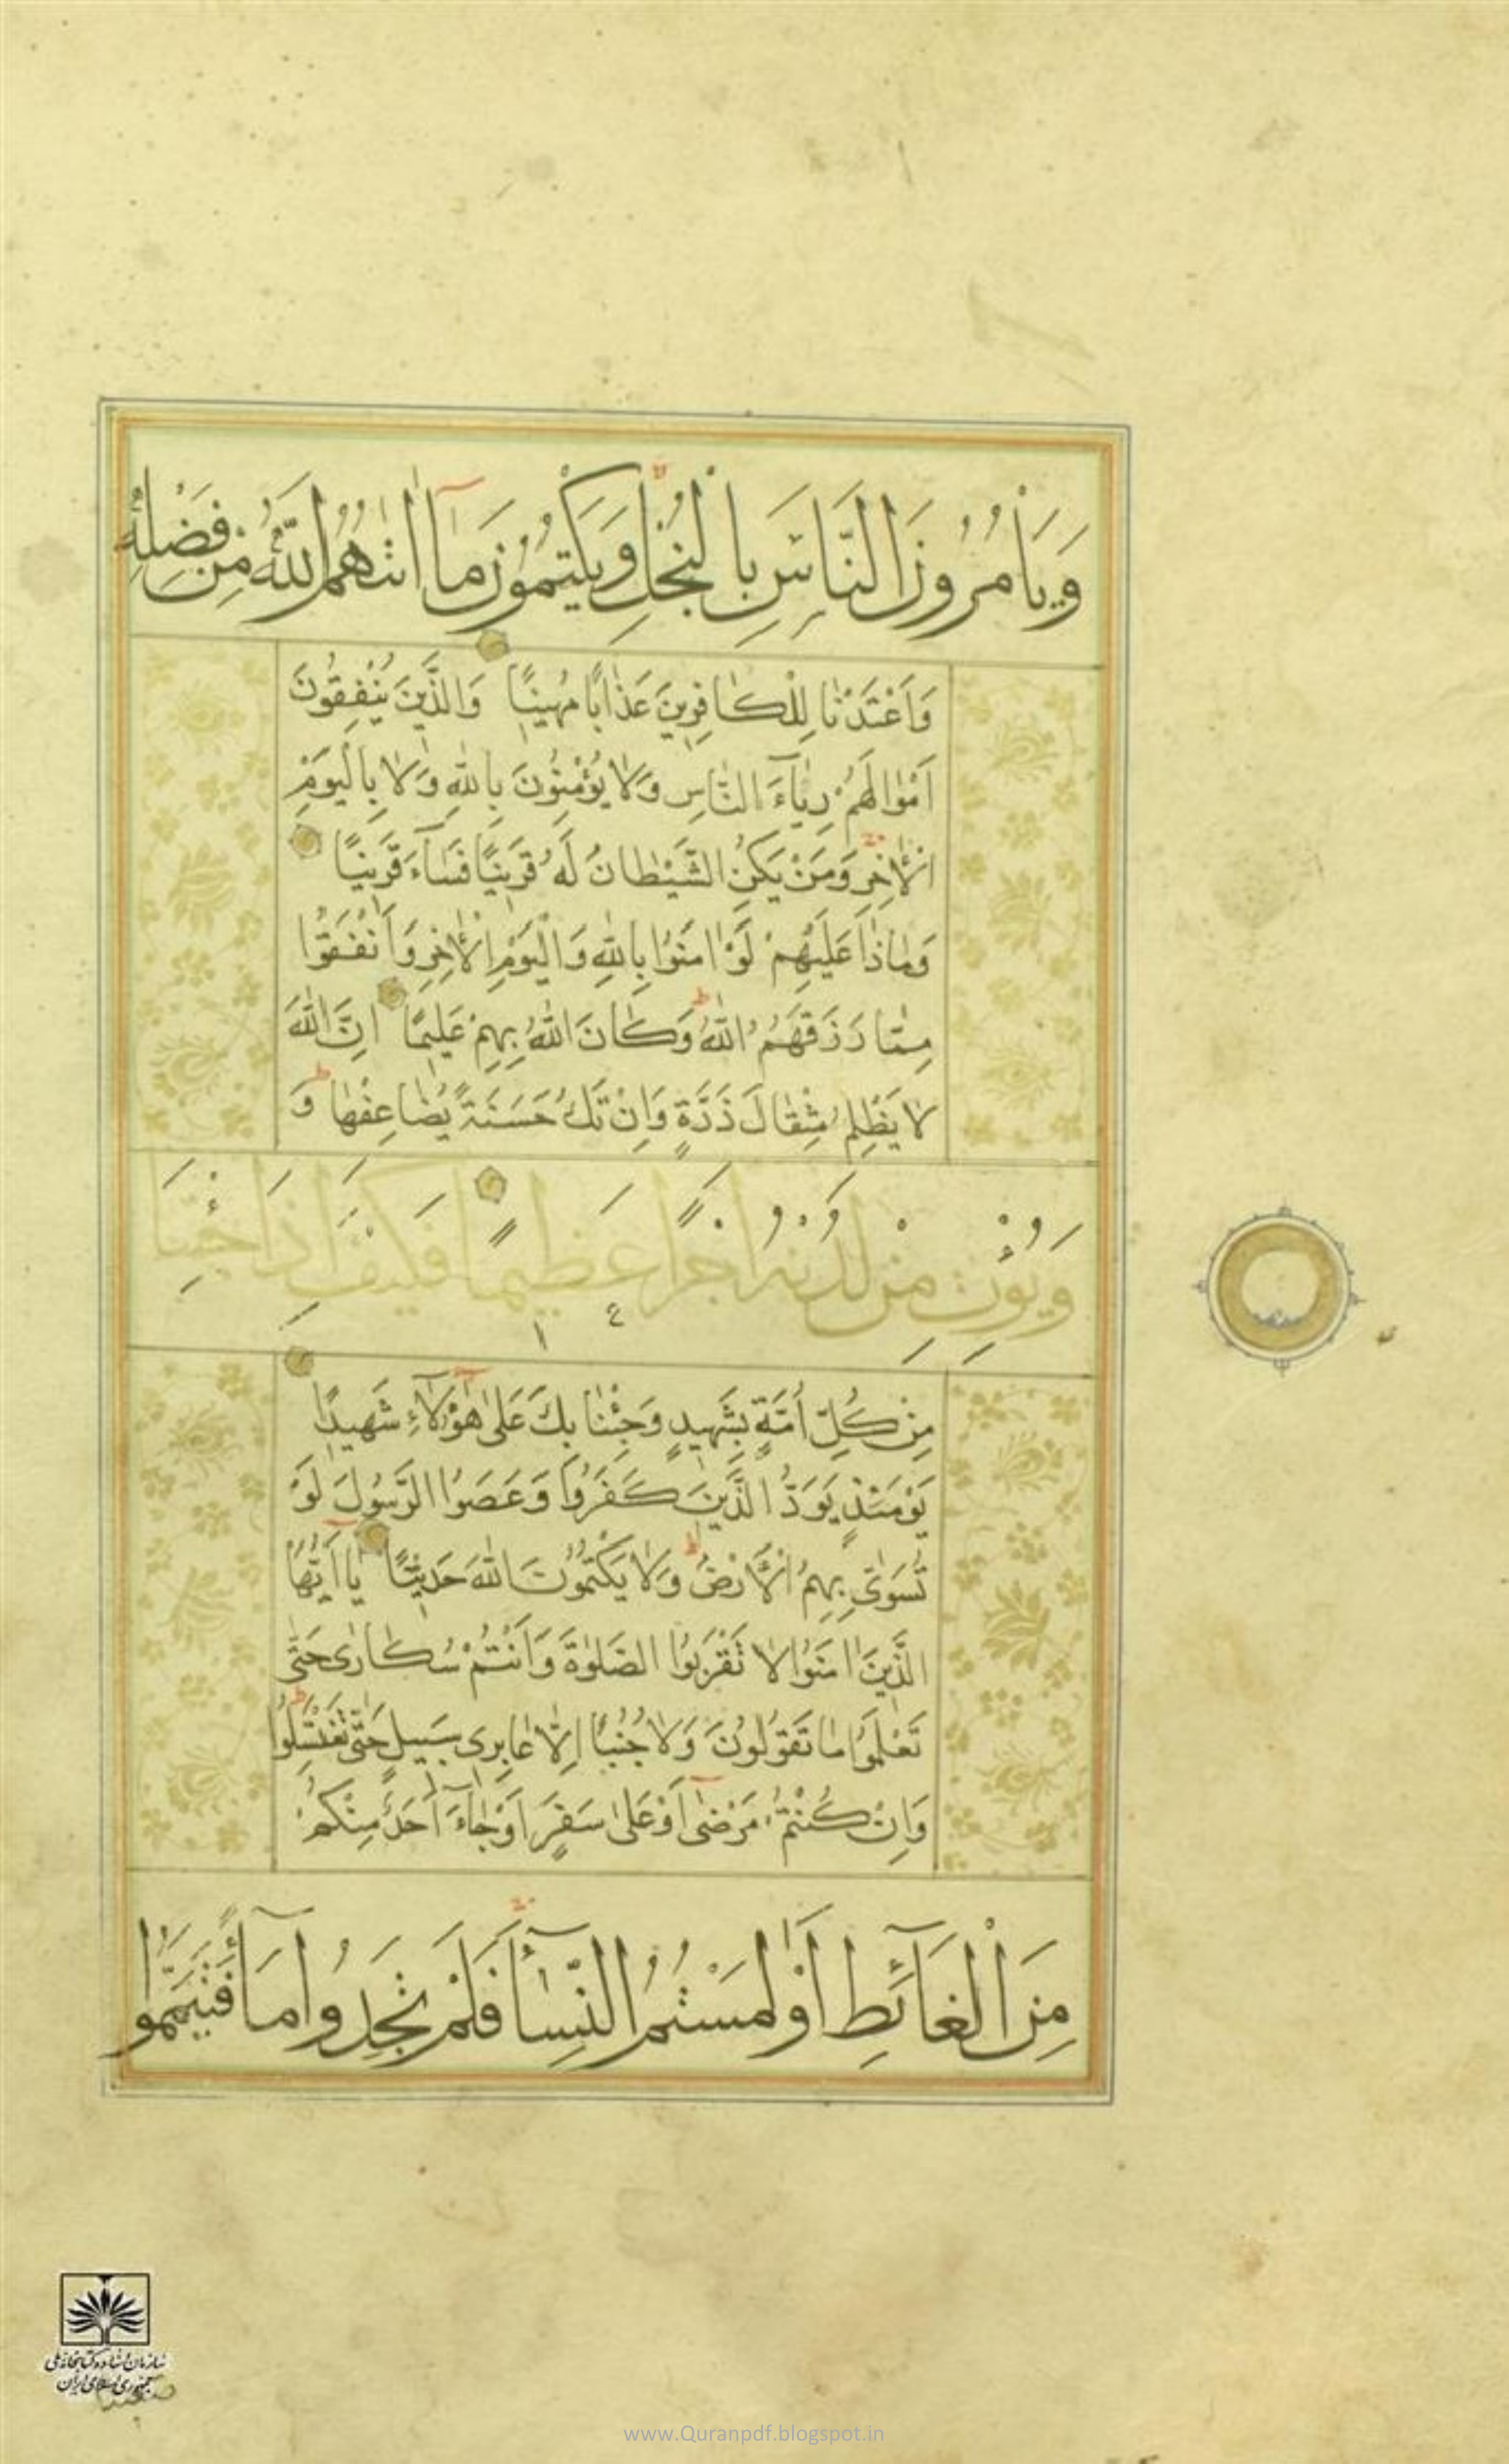 وَيَأْمُرُونَ النَّاسَ بِالْبُخْلِ وَيَكْتُمُونَ مَآ اٰتٰهُمُ اللّٰهُ مِنْ فَضْلِهٖ
وَاَعْتَدْنَا لِلْكَافِرِينَ عَذَابًا مُهِينًا وَالَّذِينَ يُنْفِقُونَ
اَمْوَالَهُمْ رِيَآءَ النَّاسِ وَلَا يُؤْمِنُونَ بِاللّٰهِ وَلَا بِالْيَوْمِ
الْاٰخِرِ وَمَنْ يَكُنِ الشَّيْطَانُ لَهُ قَرِينًا فَسَآءَ قَرِينًا
وَمَاذَا عَلَيْهِمْ لَوْ اٰمَنُوا بِاللّٰهِ وَالْيَوْمِ الْاٰخِرِ وَاَنْفَقُوا
مِمَّا رَزَقَهُمُ اللّٰهُ وَكَانَ اللّٰهُ بِهِمْ عَلِيمًا اِنَّ اللّٰهَ
لَا يَظْلِمُ مِثْقَالَ ذَرَّةٍ وَاِنْ تَكُ حَسَنَةً يُضَاعِفْهَا وَ
وَيُؤْتِ مِنْ لَدُنْهُ اَجْرًا عَظِيمًا فَكَيْفَ اِذَا جِئْنَا
مِنْ كُلِّ اُمَّةٍ بِشَهِيدٍ وَجِئْنَا بِكَ عَلٰى هٰٓؤُلَآءِ شَهِيدًا
يَوْمَئِذٍ يَوَدُّ الَّذِينَ كَفَرُوا وَعَصَوُا الرَّسُولَ لَوْ
تُسَوّٰى بِهِمُ الْاَرْضُ وَلَا يَكْتُمُونَ اللّٰهَ حَدِيثًا يَآ اَيُّهَا
الَّذِينَ اٰمَنُوا لَا تَقْرَبُوا الصَّلٰوةَ وَاَنْتُمْ سُكَارٰى حَتّٰى
تَعْلَمُوا مَا تَقُولُونَ وَلَا جُنُبًا اِلَّا عَابِرِى سَبِيلٍ حَتّٰى تَغْتَسِلُوا
وَاِنْ كُنْتُمْ مَرْضٰٓى اَوْ عَلٰى سَفَرٍ اَوْ جَآءَ اَحَدٌ مِنْكُمْ
مِنَ الْغَآئِطِ اَوْ لٰمَسْتُمُ النِّسَآءَ فَلَمْ تَجِدُوا مَآءً فَتَيَمَّمُوا
سازمان اسناد و کتابخانه ملی
جمهوری اسلامی ایران
www.Quranpdf.blogspot.in